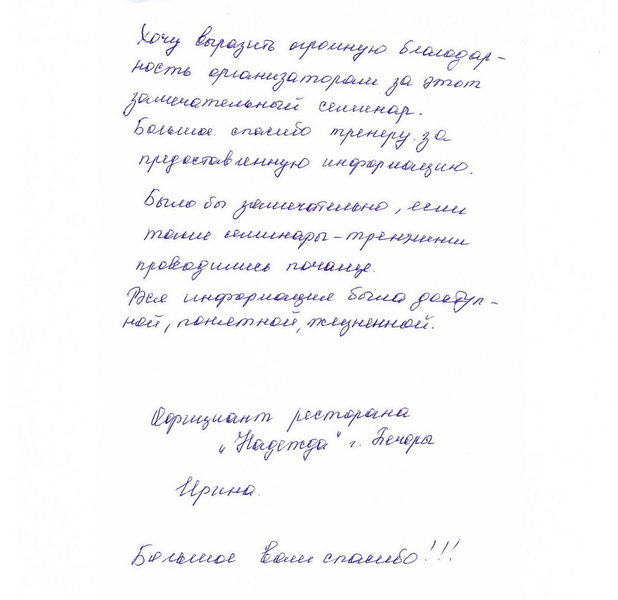 Хочу выразить огромную благодар-
ность организаторам за этот
замечательный семинар.
Большое спасибо тренеру за
предоставленную информацию.
Было бы замечательно, если
такие семинары-тренинги
проводились почаще.
Вся информация была доступ-
ной, понятной, жизненной.
Официант ресторана
"Надежда" г. Печоры
Ирина.
Большое Вам спасибо!!!